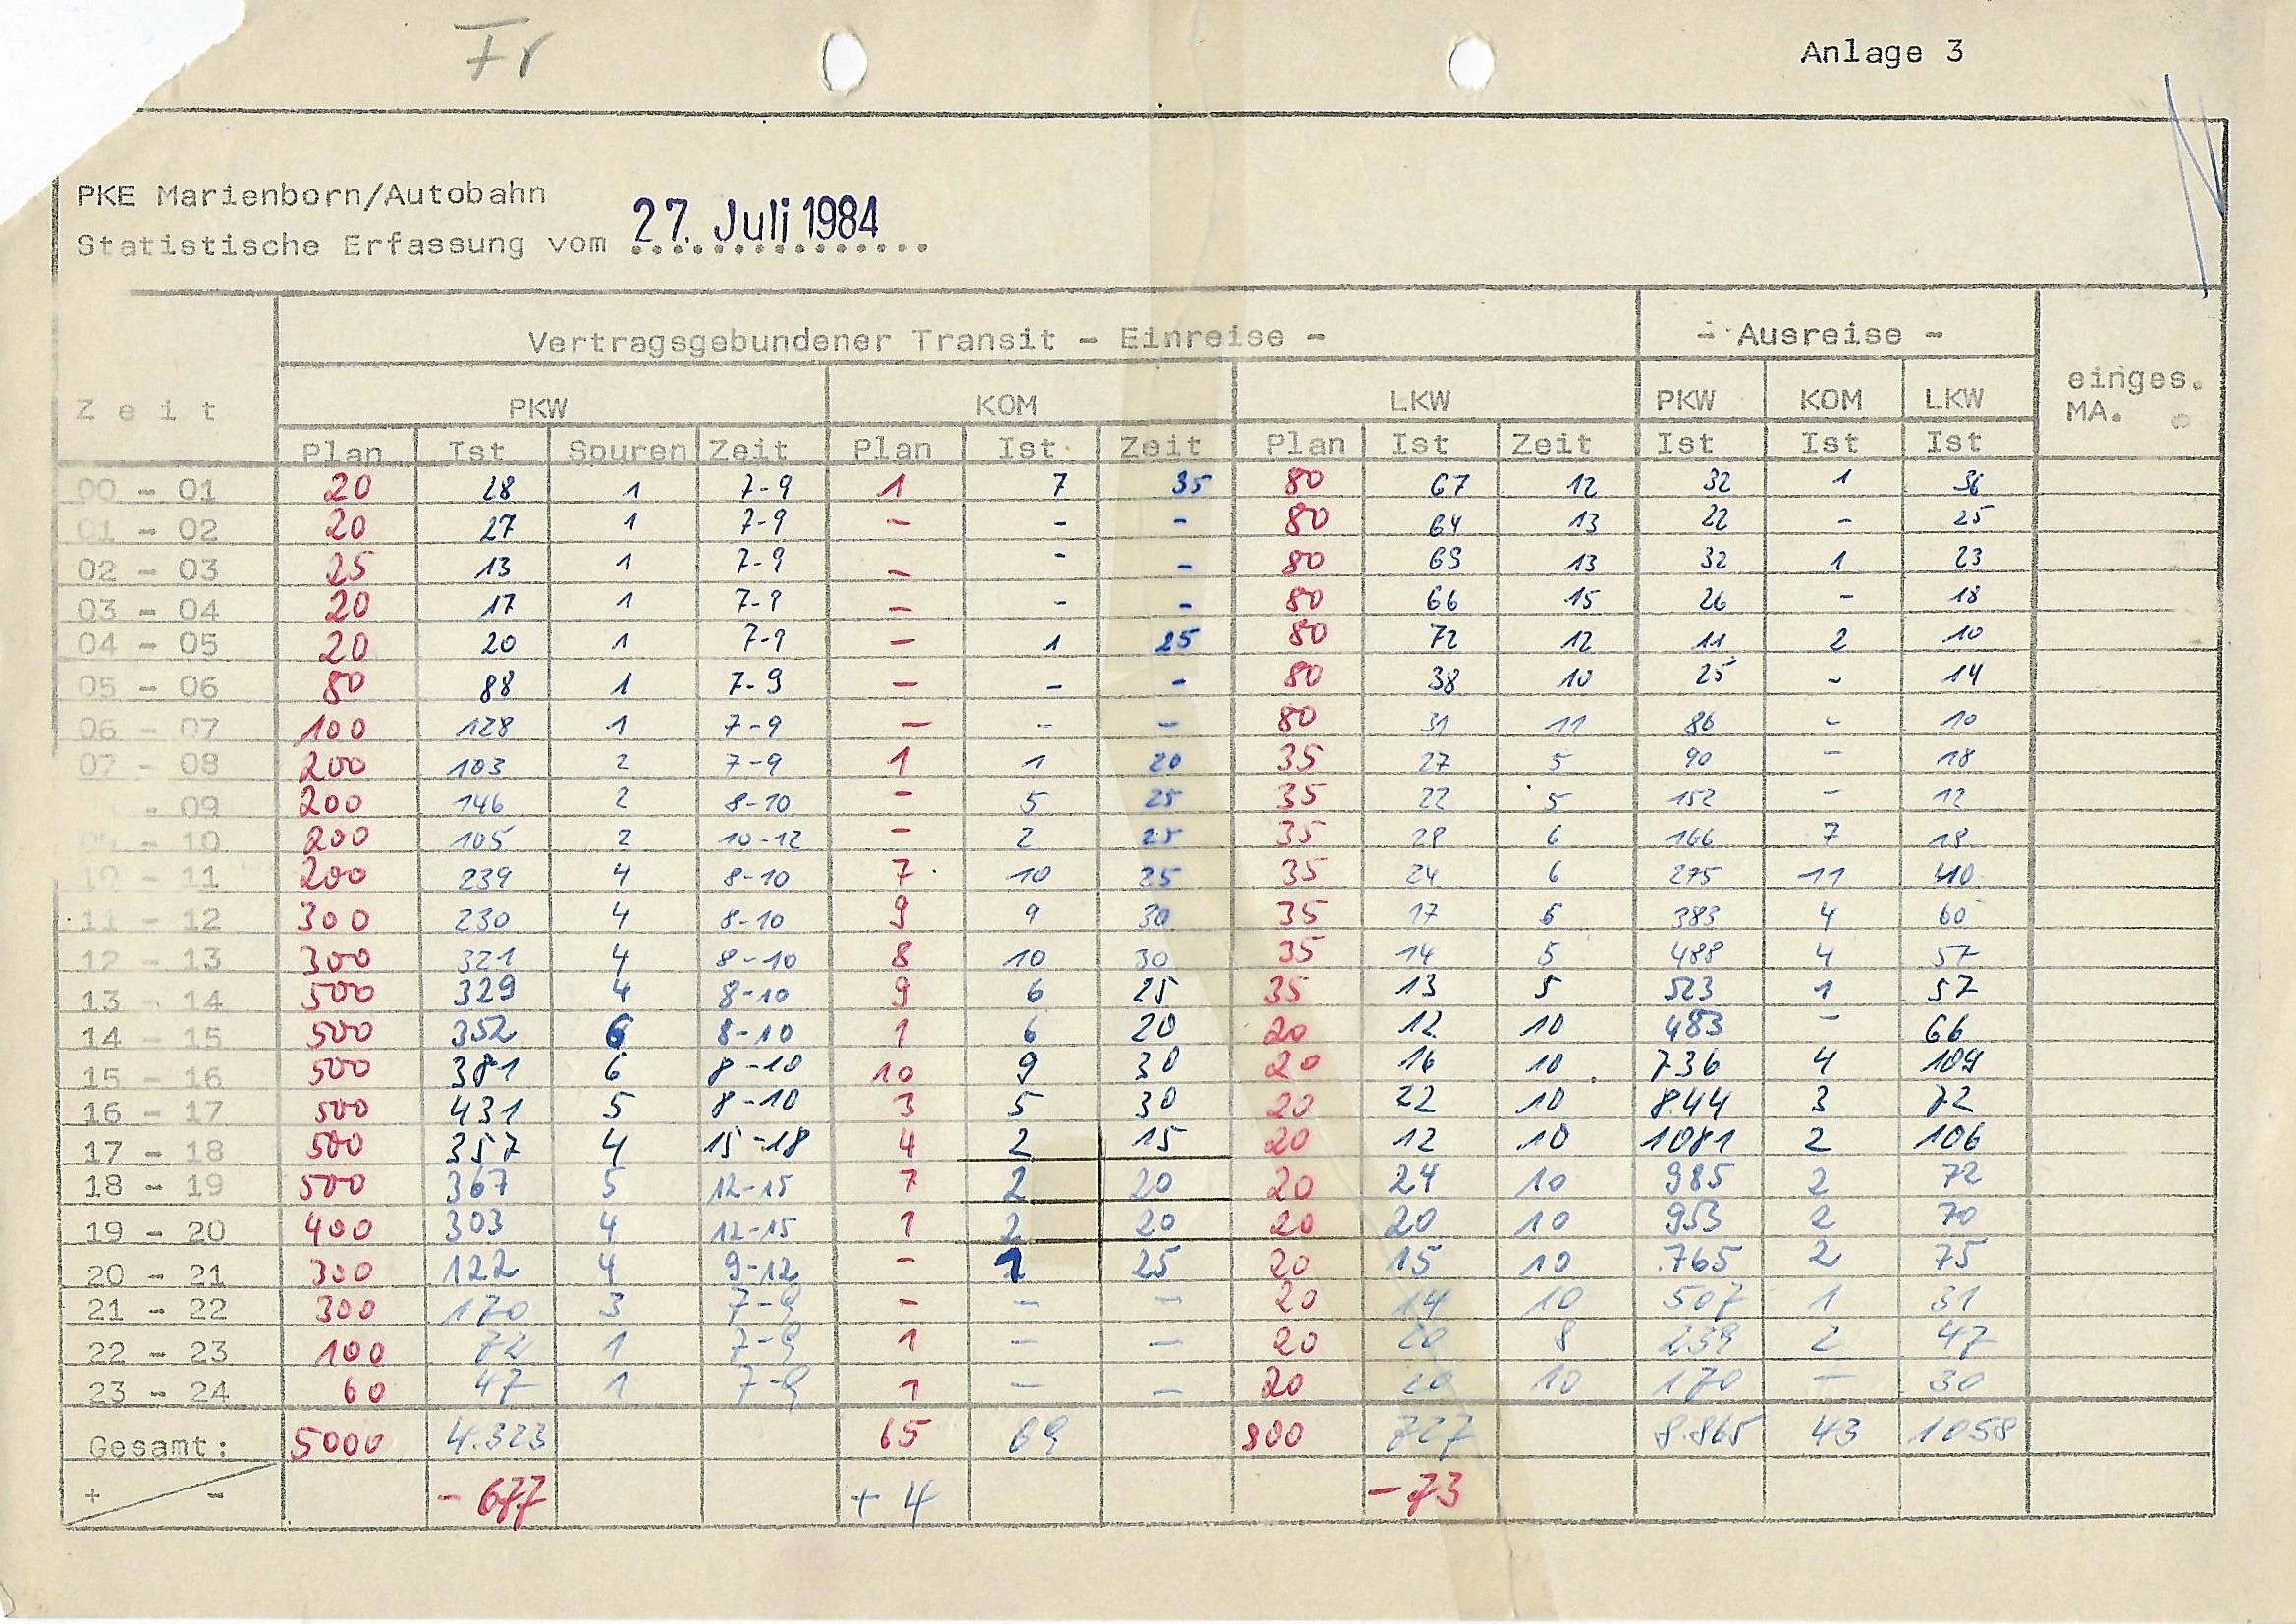 Fr
Anlage 3
PKE Marienborn/Autobahn
Statistische Erfassung vom 27. Juli 1984
Vertragsgebundener Transit - Einreise - - Ausreise -
Zeit PKW KOM LKW PKW KOM LKW einges. MA.
Plan Ist Spuren Zeit Plan Ist Zeit Plan Ist Zeit Ist Ist Ist
00 - 01 20 28 1 7-9 1 7 35 80 67 12 32 1 36
01 - 02 20 27 1 7-9 - - - 80 64 13 22 - 25
02 - 03 25 13 1 7-9 - - - 80 65 13 32 1 23
03 - 04 20 17 1 7-9 - - - 80 66 15 26 - 18
04 - 05 20 20 1 7-9 - 1 25 80 72 12 11 2 10
05 - 06 80 88 1 7-9 - - - 80 38 10 25 - 14
06 - 07 100 128 1 7-9 - - - 80 31 11 86 - 10
07 - 08 200 103 2 7-9 1 1 20 35 27 5 90 - 18
- 09 200 146 2 8-10 - 5 25 35 22 5 152 - 12
09 - 10 200 105 2 10-12 - 2 25 35 28 6 166 7 18
10 - 11 200 239 4 8-10 7 10 25 35 24 6 295 11 40
11 - 12 300 230 4 8-10 9 9 30 35 17 6 383 4 60
12 - 13 300 321 4 8-10 8 10 30 35 14 5 488 4 57
13 - 14 500 329 4 8-10 9 6 25 35 13 5 523 1 57
14 - 15 500 352 6 8-10 1 6 20 20 12 10 483 - 66
15 - 16 500 381 6 8-10 10 9 30 20 16 10 736 4 109
16 - 17 500 431 5 8-10 3 5 30 20 22 10 844 3 72
17 - 18 500 357 4 15-18 4 2 15 20 12 10 1081 2 106
18 - 19 500 367 5 12-15 7 2 20 20 24 10 985 2 72
19 - 20 400 303 4 12-15 1 2 20 20 20 10 953 2 70
20 - 21 300 122 4 9-12 - 25 20 15 10 765 2 75
21 - 22 300 170 3 7-9 - - - 20 14 10 507 1 31
22 - 23 100 72 1 7-9 1 - - 20 20 8 239 2 47
23 - 24 60 47 1 7-9 1 - - 20 20 10 170 - 30
Gesamt: 5000 4.323 65 69 800 727 8.865 43 1058
+ - - 677 + 4 - 73